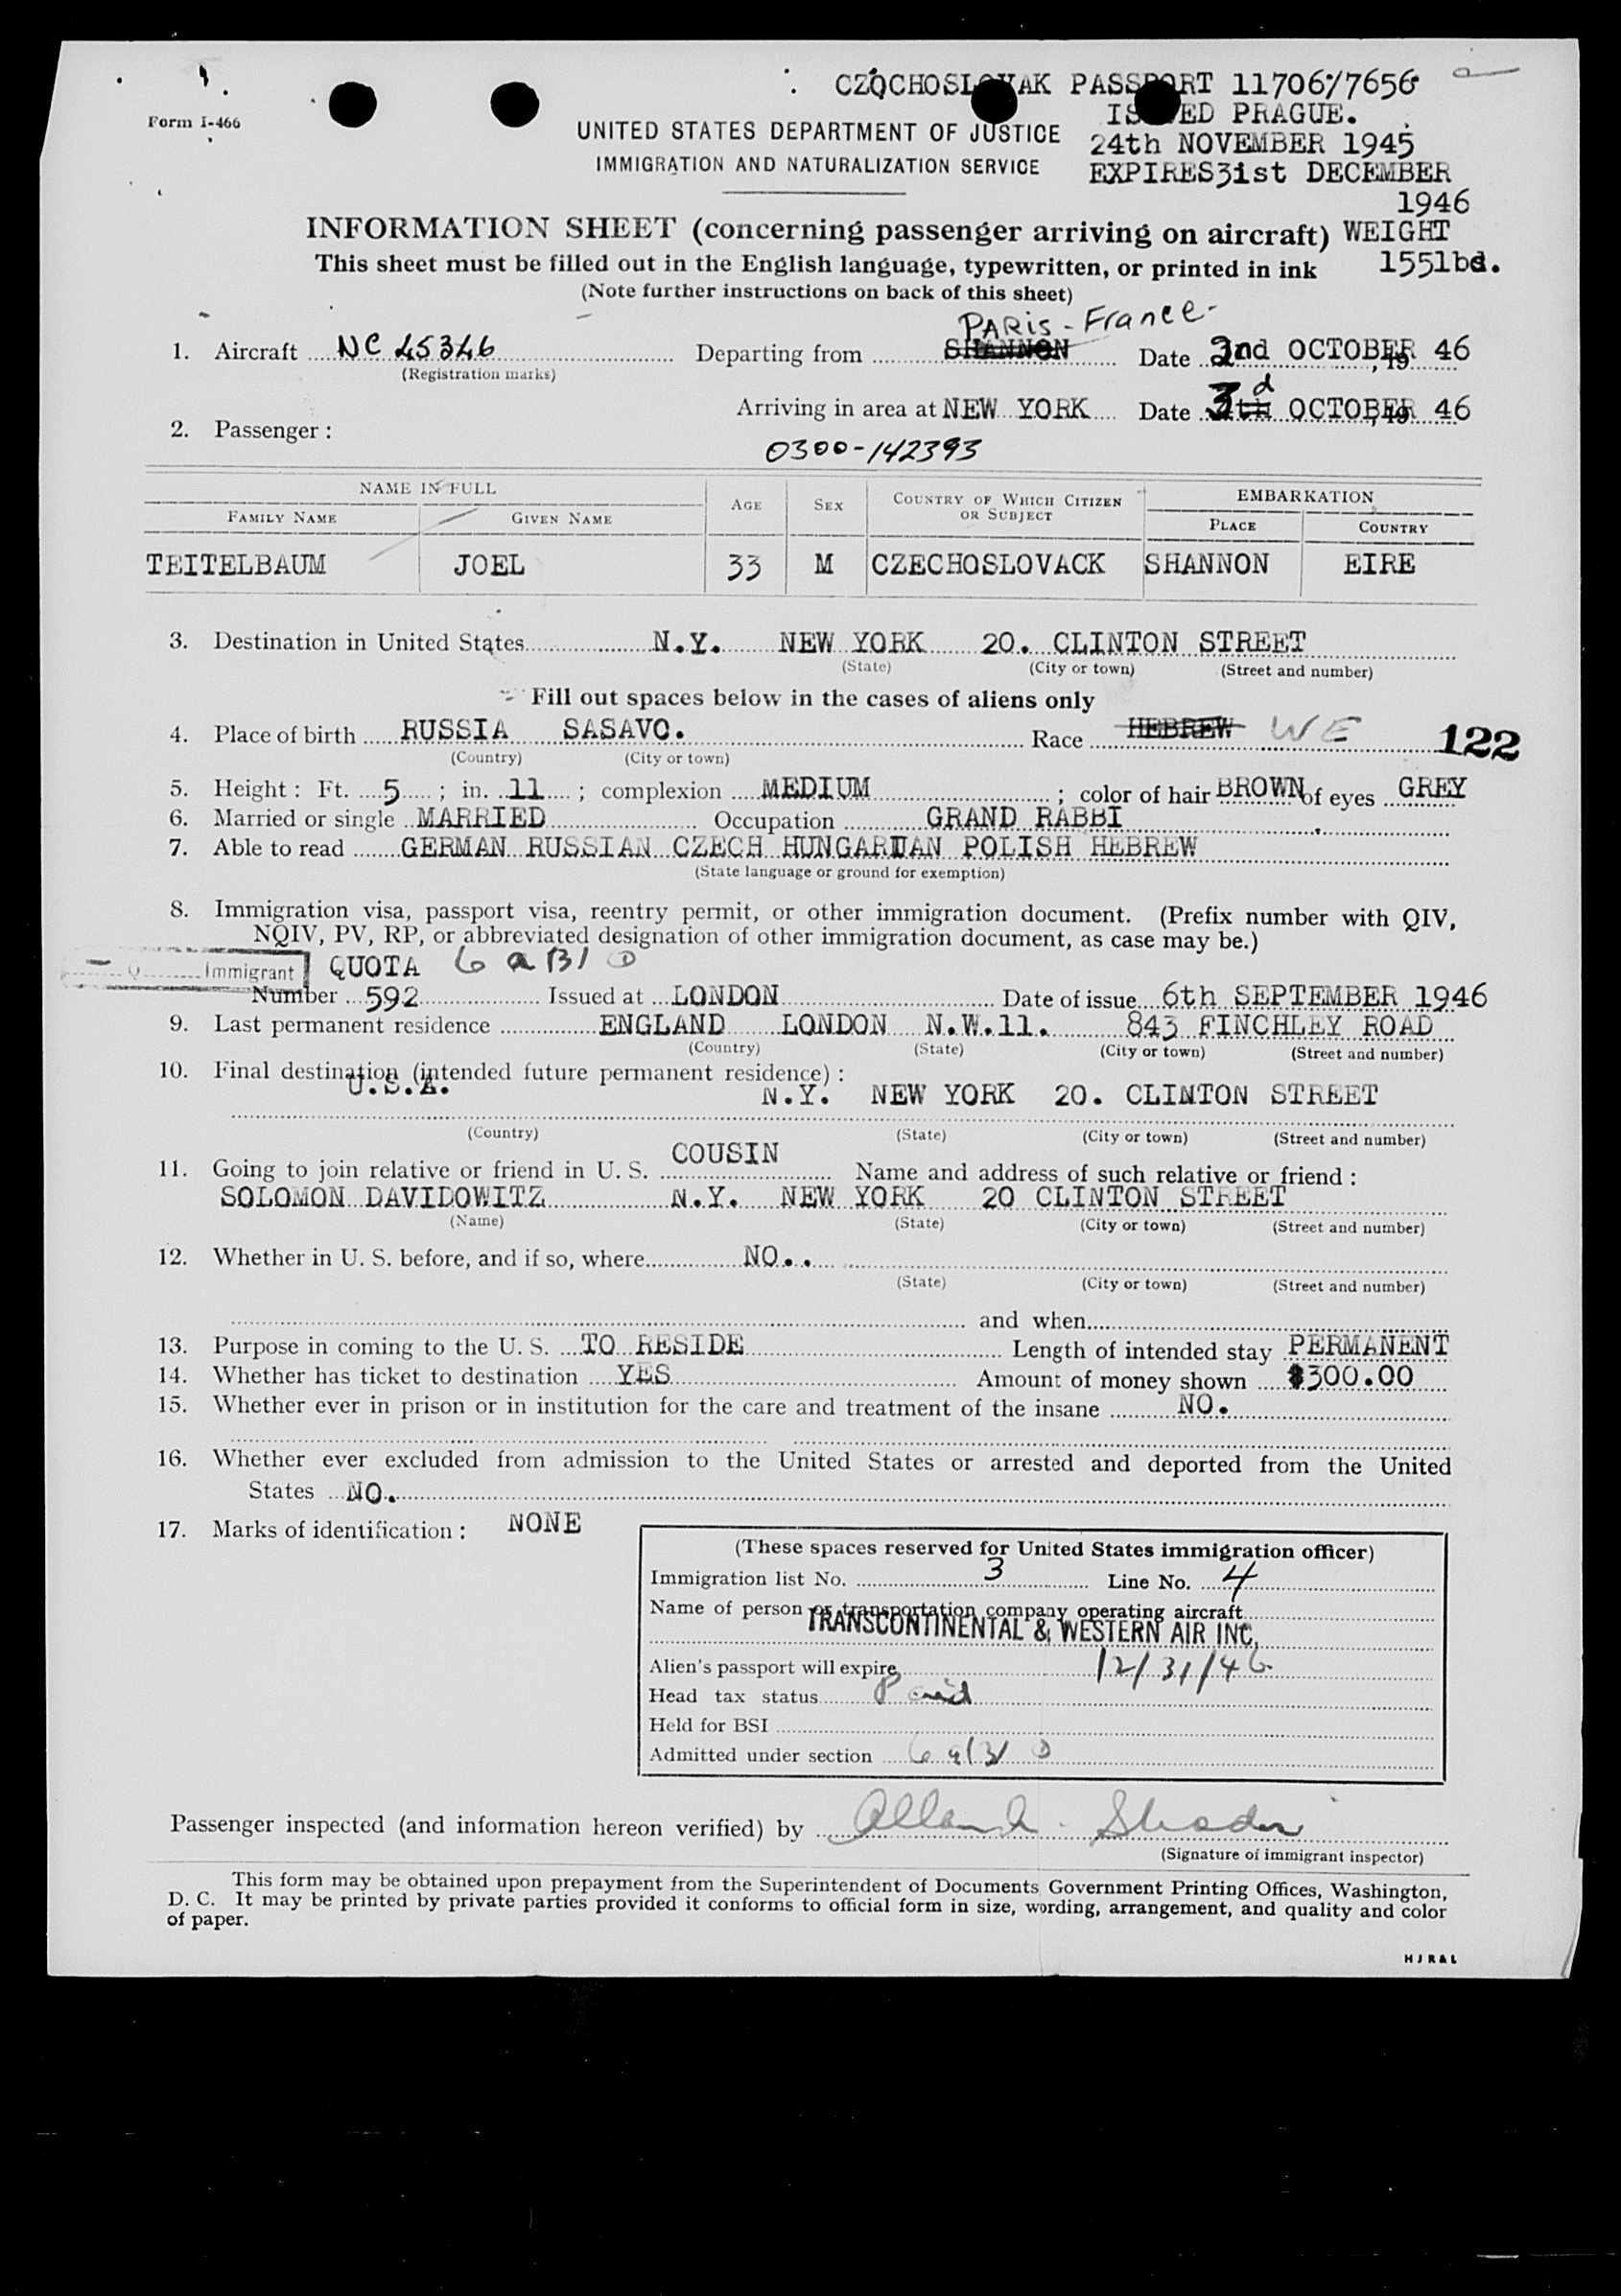 CZOCHOSLOVAK PASSPORT 11706/7656
Form I-466
ISSUED PRAGUE.
UNITED STATES DEPARTMENT OF JUSTICE
24th NOVEMBER 1945
IMMIGRATION AND NATURALIZATION SERVICE
EXPIRES31st DECEMBER
1946
INFORMATION SHEET (concerning passenger arriving on aircraft) WEIGHT
This sheet must be filled out in the English language, typewritten, or printed in ink 155lbd.
(Note further instructions on back of this sheet)
PARis - France -
1. Aircraft NC 45346 Departing from SHANNON Date 2nd OCTOBER, 19 46
(Registration marks)
Arriving in area at NEW YORK Date 3d OCTOBER, 19 46
2. Passenger :
0300-142393
NAME IN FULL AGE SEX COUNTRY OF WHICH CITIZEN OR SUBJECT EMBARKATION
FAMILY NAME GIVEN NAME PLACE COUNTRY
TEITELBAUM JOEL 33 M CZECHOSLOVACK SHANNON EIRE
3. Destination in United States N.Y. NEW YORK 20. CLINTON STREET
(State) (City or town) (Street and number)
Fill out spaces below in the cases of aliens only
4. Place of birth RUSSIA SASAVO. Race HEBREW WE 122
(Country) (City or town)
5. Height : Ft. 5 ; in. 11 ; complexion MEDIUM ; color of hair BROWN of eyes GREY
6. Married or single MARRIED Occupation GRAND RABBI
7. Able to read GERMAN RUSSIAN CZECH HUNGARIAN POLISH HEBREW
(State language or ground for exemption)
8. Immigration visa, passport visa, reentry permit, or other immigration document. (Prefix number with QIV,
NQIV, PV, RP, or abbreviated designation of other immigration document, as case may be.)
Q Immigrant QUOTA 6 a (3)
Number 592 Issued at LONDON Date of issue 6th SEPTEMBER 1946
9. Last permanent residence ENGLAND LONDON N.W.11. 843 FINCHLEY ROAD
(Country) (State) (City or town) (Street and number)
10. Final destination (intended future permanent residence) :
U.S.A. N.Y. NEW YORK 20. CLINTON STREET
(Country) (State) (City or town) (Street and number)
11. Going to join relative or friend in U. S. COUSIN Name and address of such relative or friend :
SOLOMON DAVIDOWITZ N.Y. NEW YORK 20 CLINTON STREET
(Name) (State) (City or town) (Street and number)
12. Whether in U. S. before, and if so, where NO..
(State) (City or town) (Street and number)
and when
13. Purpose in coming to the U. S. TO RESIDE Length of intended stay PERMANENT
14. Whether has ticket to destination YES Amount of money shown $300.00
15. Whether ever in prison or in institution for the care and treatment of the insane NO.
16. Whether ever excluded from admission to the United States or arrested and deported from the United
States NO.
17. Marks of identification : NONE
(These spaces reserved for United States immigration officer)
Immigration list No. 3 Line No. 4
Name of person or transportation company operating aircraft
TRANSCONTINENTAL & WESTERN AIR INC,
Alien's passport will expire 12/31/46
Head tax status Paid
Held for BSI
Admitted under section 6 a(3)
Passenger inspected (and information hereon verified) by
(Signature of immigrant inspector)
This form may be obtained upon prepayment from the Superintendent of Documents Government Printing Offices, Washington,
D. C. It may be printed by private parties provided it conforms to official form in size, wording, arrangement, and quality and color
of paper.
HJR&L